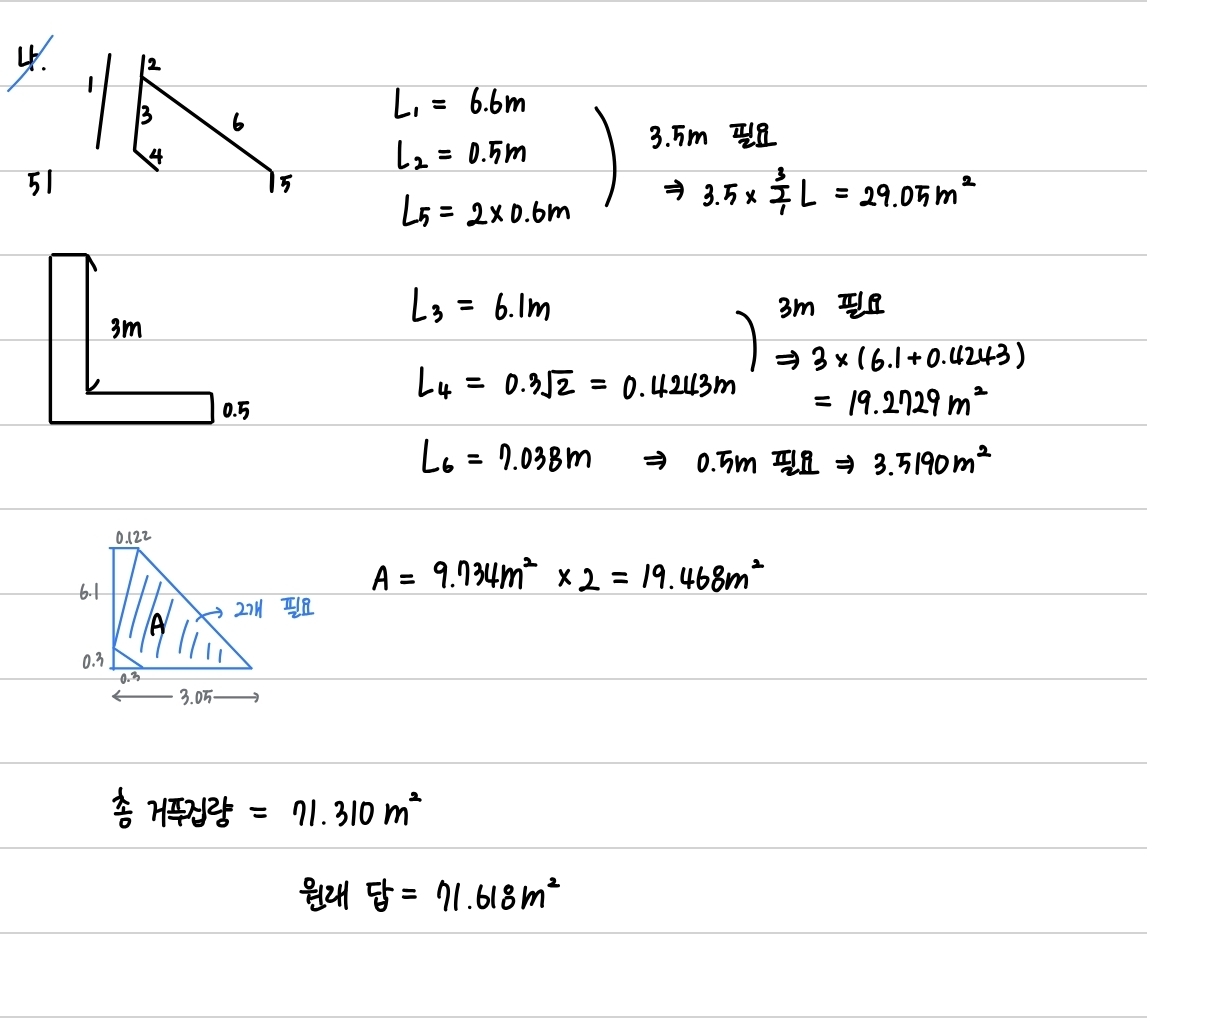 나.
1
2
3
4
6
5
5
L₁ = 6.6m
L₂ = 0.5m
L5 = 2×0.6m
3.5m 필요
⇒ 3.5 × 3/Σ/1 L = 29.05m²
3m
0.5
L₃ = 6.1m
L₄ = 0.3√2 = 0.4243m
3m 필요
⇒ 3×(6.1+0.4243)
= 19.2729m²
L₆ = 7.038m ⇒ 0.5m 필요 ⇒ 3.5190m²
0.122
6.1
A
2개 필요
0.3
0.3
3.05
A = 9.734m² × 2 = 19.468m²
총 거푸집량 = 71.310 m²
원래 답 = 71.618m²